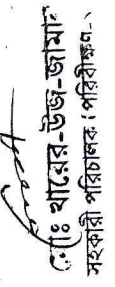 মোঃ খায়ের-উজ-জামান
সহকারী পরিচালক (পরিবীক্ষণ-১